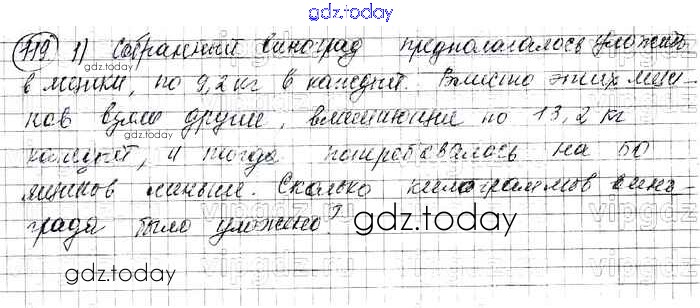 gdz.today
719 1) Собранный виноград предполагалось уложить
в мешки, по 9,2 кг в каждый. Вместо этих меш-
gdz.today
ков взяли другие, вмещающие по 13,2 кг
каждый, и тогда потребовалось на 50
ящиков меньше. Сколько килограммов вино-
града было уложено?
gdz.today
gdz.today
vipgdz.ru